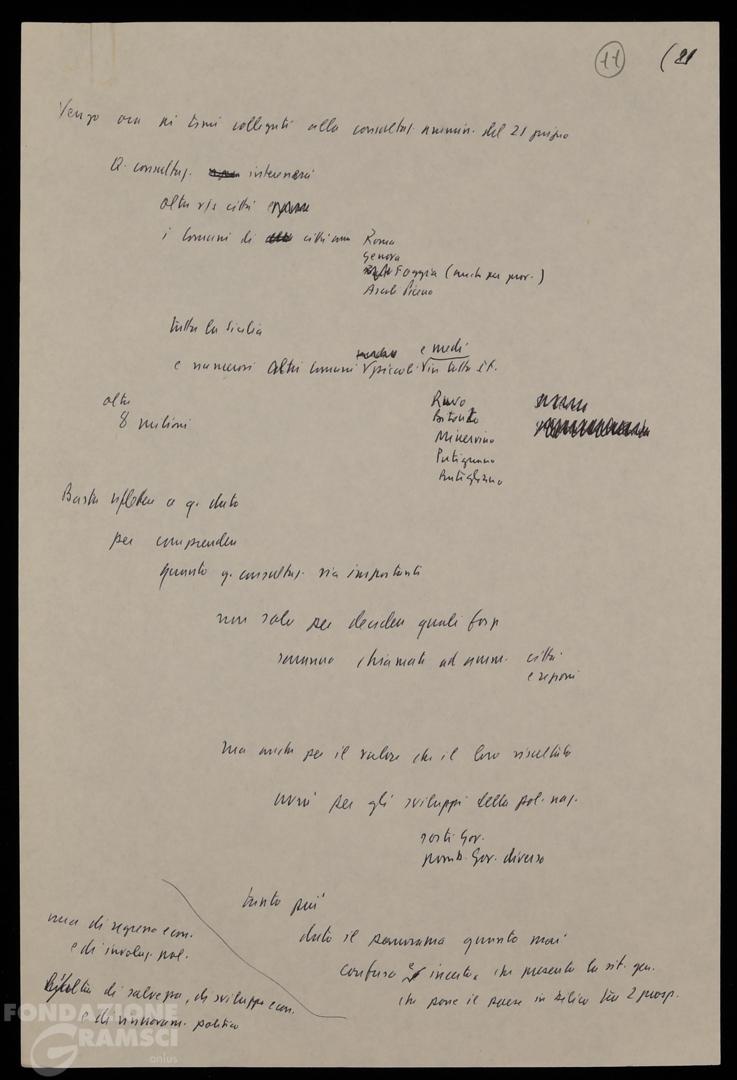 11 (21
Vengo ora ai temi collegati alla consultaz. ammin. del 21 giugno
Q. consultaz. interesserà
oltre città
i Comuni di città come Roma
Genova
Foggia (anche per prov.)
Ascoli Piceno
tutta la Sicilia
e numerosi altri comuni piccoli e medi in tutta It.
oltre
8 milioni
Ruvo
Bitonto
Minervino
Putignano
Basta riflettere a q. dato
per comprendere
quanto q. consultaz. sia importante
non solo per decidere quali forze
saranno chiamate ad amm. città
e regioni
ma anche per il valore che il loro risultato
avrà per gli sviluppi della pol. naz.
sorti Gov.
possib. Gov. diverso
tanto più
dato il panorama quanto mai
confuso e incerto che presenta la sit. gen.
che pone il paese in bilico tra 2 prosp.
una di regresso econ.
e di involuz. pol.
l'altra di salvezza, di sviluppo econ.
e di rinnovam. politico
FONDAZIONE
GRAMSCI
onlus